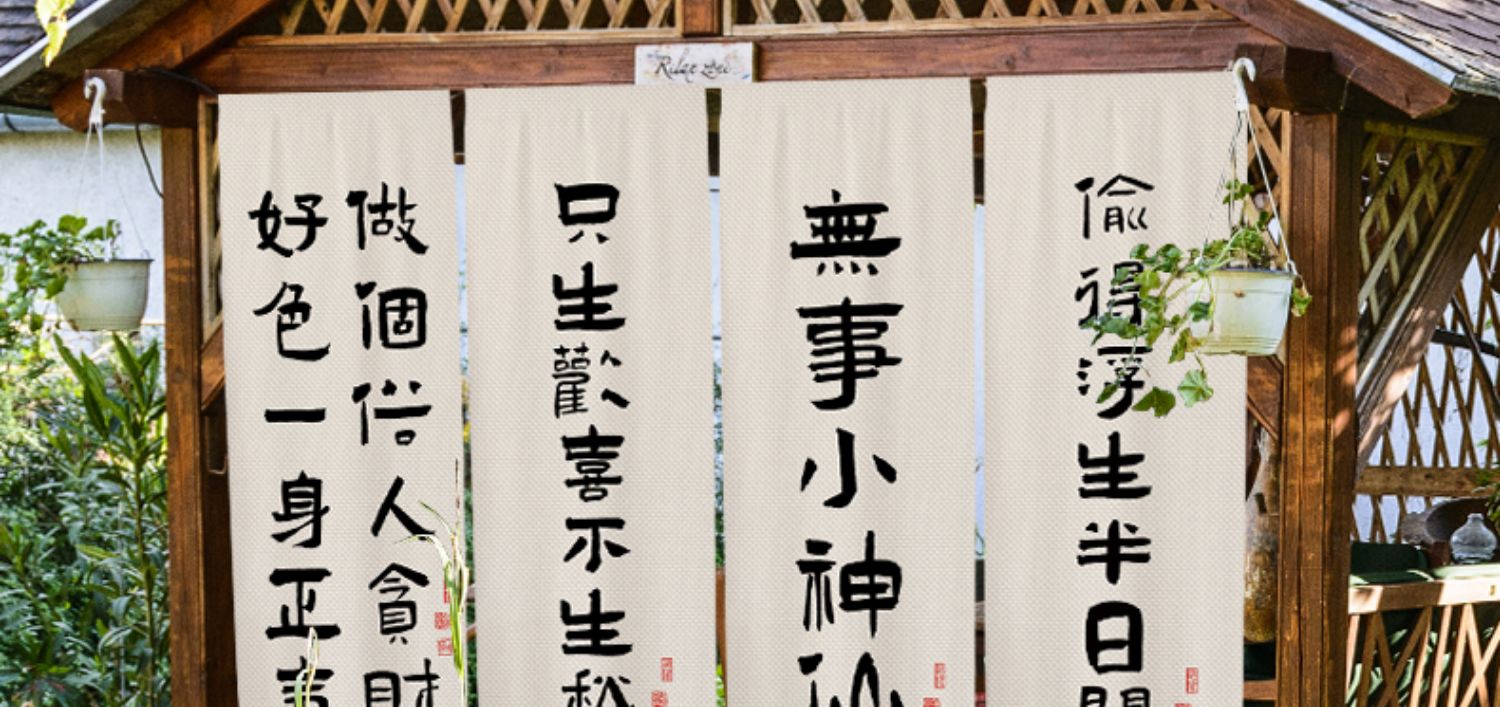 Relax zone
偷得浮生半日
無事小神仙
只生歡喜不生
做個俗人貪財
好色一身正